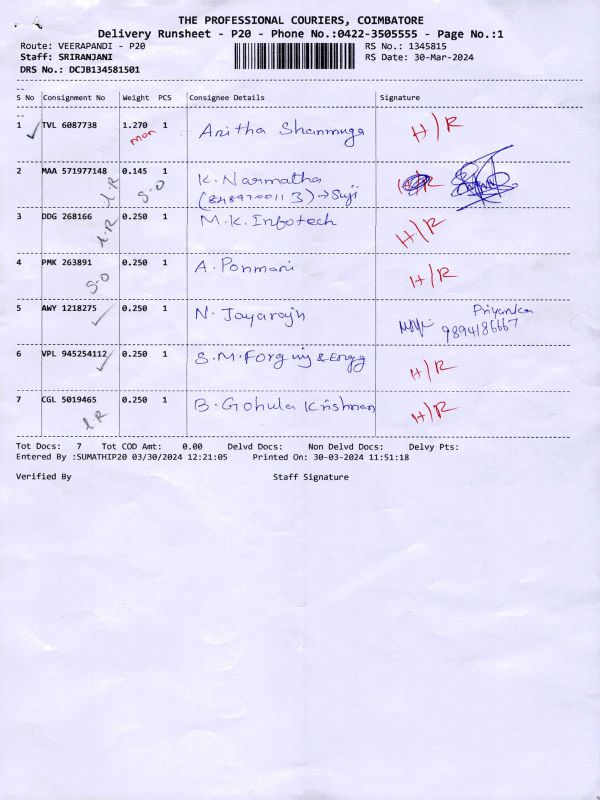 THE PROFESSIONAL COURIERS, COIMBATORE
Delivery Runsheet - P20 - Phone No.:0422-3505555 - Page No.:1
Route: VEERAPANDI - P20 RS No.: 1345815
Staff: SRIRANJANI RS Date: 30-Mar-2024
DRS No.: DCJB134581501
S No Consignment No Weight PCS Consignee Details Signature
1 TVL 6087738 1.270 1 Anitha Shanmuga H/R
mon
2 MAA 571977148 0.145 1 K. Narmatha H/R
l.R S.O → Suji
3 DDG 268166 0.250 1 M.K. Infotech H/R
l.R
4 PMK 263891 0.250 1 A. Ponmani H/R
S.O
5 AWY 1218275 0.250 1 N. Jayarajn Priyanka
9894186667
6 VPL 945254112 0.250 1 S.M. Forging & Engg H/R
7 CGL 5019465 0.250 1 B. Gohula Krishnan H/R
l.R
Tot Docs: 7 Tot COD Amt: 0.00 Delvd Docs: Non Delvd Docs: Delvy Pts:
Entered By :SUMATHIP20 03/30/2024 12:21:05 Printed On: 30-03-2024 11:51:18
Verified By Staff Signature